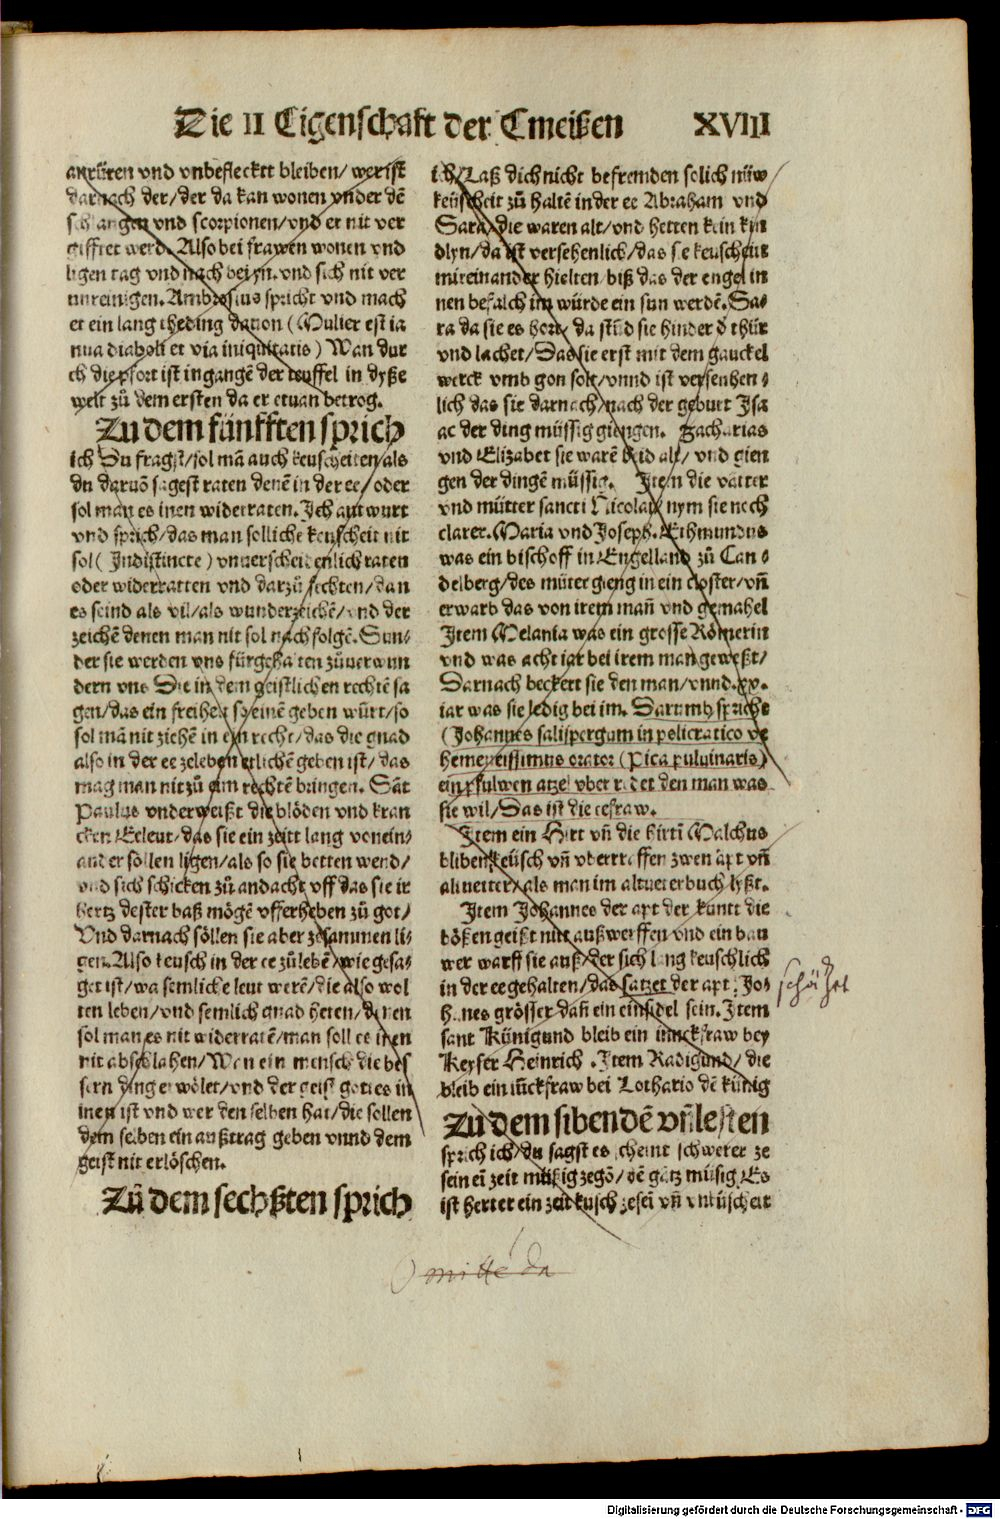 Die II Eigenschaft der Emeißen XVIII
anrüren vnd vnbefleckt bleiben/ wer ist
darnach der/der da kan wonen vnder dē
schlangen vnd scorpionen/vnd er nit ver
gifftet werd. Also bei frawen wonen vnd
ligen tag vnd nach bei yn. vnd sich nit ver
unreinigen. Ambrosius spricht vnd mach
et ein lang theding dauon (Mulier est ia
nua diaboli et via iniquitatis) Wan dur
ch die pfort ist ingangē der teuffel in dyße
welt zů dem ersten da er etuan betrog.
Zu dem fünfften sprich
ich Du fragst/sol mā auch keuscheiten/als
du daruō sagest raten denē in der ee/oder
sol man es inen widerraten. Ich antwurt
vnd sprich/das man solliche keuscheit nit
sol( Indistincte) vnuerscheidenlich raten
oder widerratten vnd darzů fechten/dan
es seind als vil/als wunderzeichē/vnd der
zeichē denen man nit sol nachfolgē. Sun⸗
der sie werden vns fürgehalten zůuerwun
dern vns Die in dem geistlichen rechtē sa
gen/das ein freiheit so einē geben würt/so
sol mā nit ziehē in ein recht/das die gnad
also in der ee zeleben etlichē geben ist/das
mag man nit zů eim rechtē bringen. Sāt
Paulus vnderweißt die blöden vnd kran
cken Eeleut/das sie ein zeitt lang vonein⸗
ander söllen ligen/als so sie betten wend/
vnd sich schicken zů andacht vff das sie ir
hertz dester baß mögē vfferheben zů got/
Vnd darnach söllen sie aber zesammen li⸗
gen. Also keusch in der ee zůlebē/wie gesa⸗
get ist/wa semliche leut werē/die also wol
ten leben/vnd semlich gnad heten/denen
sol man es nit widerratē/man soll es inen
nit abschlahen/Wen ein mensch die bes
sern ding erwölet/vnd der geist gottes in
inen ist vnd wer den selben hat/die sollen
dem selben ein außtrag geben vnnd dem
geist nit erlöschen.
Zů dem sechßten sprich
ich/Laß dich nicht befremden solich nüw
keüscheit zů haltē in der ee Abraham vnd
Sara/die waren alt/vnd hetten kein kyn
dlyn/da ist versehenlich/das sie keuscheit
miteinander hielten/biß das der engel in
nen befalch im würde ein sun werdē. Sa⸗
ra da sie es hort/ da stůd sie hinder d thür
vnd lachet/Das sie erst mit dem gauckel
werck vmb gon solt/vnnd ist versenhen⸗
lich das sie darnach/nach der geburt Isa
ac der ding müssig giengen. Zacharias
vnd Elizabet sie warē beid alt/ vnd gien
gen der dingē müssig. Item die vatter
vnd mütter sancti Nicolai/ nym sie noch
clarer. Maria vnd Joseph. Ethmundus
was ein bischoff in Engelland zů Can⸗
delberg/des můter gieng in ein closter/vñ
erwarb das von irem mañ vnd gemahel
Item Melania was ein grosse Römerin
vnd was acht iar bei irem man geweßt/
Darnach beckert sie den man/vnnd.xx.
iar was sie ledig bei im. Darumb spricht
(Johannes salispergum in policratico ve
hementissimus orator (Pica puluinaris)
ein pfulwen atzel vber redet den man was
sie wil/Das ist die eefraw.
Item ein Hirt vñ die hirtī Malchus
bliben keüsch vñ vbertreffen zwen äpt vñ
altuetter/als man im altueterbuch lyßt.
Item Johannes der apt der kuntt die
bößen geißt nitt außwerffen/vnd ein bau
wer warff sie auß/der sich lang keuschlich
in der ee gehalten/das satzet der apt. Jo⸗
hanes grösser dañ ein einsidel sein. Item
sant Künigund bleib ein iunckfraw bey
Keyser Heinrich .Item Radigund/ die
bleib ein iūckfraw bei Lothario dē künig
Zu dem sibendē vñ lesten
sprich ich/du sagst es scheint schwerer ze
sein eī zeit müßig zegō/dē gātz müsig. Es
ist herter ein zeit kusch zesei vñ vnküscheit
schätzet
omitte da
Digitalisierung gefördert durch die Deutsche Forschungsgemeinschaft - DFG